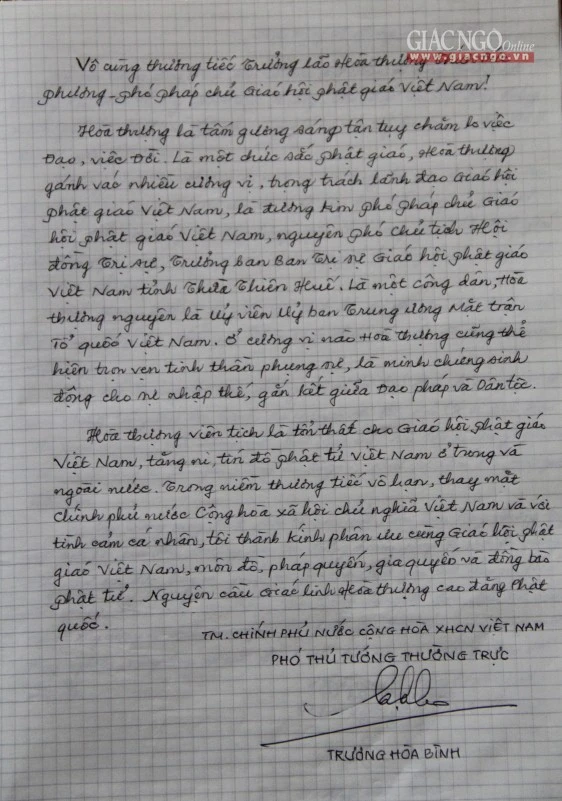 GIÁC NGỘ Online
www.giacngo.vn
Vô cùng thương tiếc Trưởng lão Hòa thượng
phương - phó pháp chủ Giáo hội phật giáo Việt Nam!
Hòa thượng là tấm gương sáng tận tụy chăm lo việc
Đạo, việc Đời. Là một chức sắc phật giáo, Hòa thượng
gánh vác nhiều cương vị, trọng trách lãnh đạo Giáo hội
phật giáo Việt Nam, là đương kim phó pháp chủ Giáo
hội phật giáo Việt Nam, nguyên phó chủ tịch Hội
đồng Trị sự, Trưởng ban Ban Trị sự Giáo hội phật giáo
Việt Nam tỉnh Thừa Thiên Huế. Là một công dân, Hòa
thượng nguyên là Uỷ viên Uỷ ban Trung ương Mặt trận
Tổ quốc Việt Nam. Ở cương vị nào Hòa thượng cũng thể
hiện trọn vẹn tinh thần phụng sự, là minh chứng sinh
động cho sự nhập thế, gắn kết giữa Đạo pháp và Dân tộc.
Hòa thượng viên tịch là tổn thất cho Giáo hội phật giáo
Việt Nam, tăng ni, tín đồ phật tử Việt Nam ở trong và
ngoài nước. Trong niềm thương tiếc vô hạn, thay mặt
chính phủ nước Cộng hòa xã hội chủ nghĩa Việt Nam và với
tình cảm cá nhân, tôi thành kính phân ưu cùng Giáo hội phật
giáo Việt Nam, môn đồ, pháp quyến, gia quyến và đồng bào
phật tử. Nguyện cầu Giác linh Hòa thượng cao đăng Phật
quốc.
TM. CHÍNH PHỦ NƯỚC CỘNG HÒA XHCN VIỆT NAM
PHÓ THỦ TƯỚNG THƯỜNG TRỰC
TRƯƠNG HÒA BÌNH